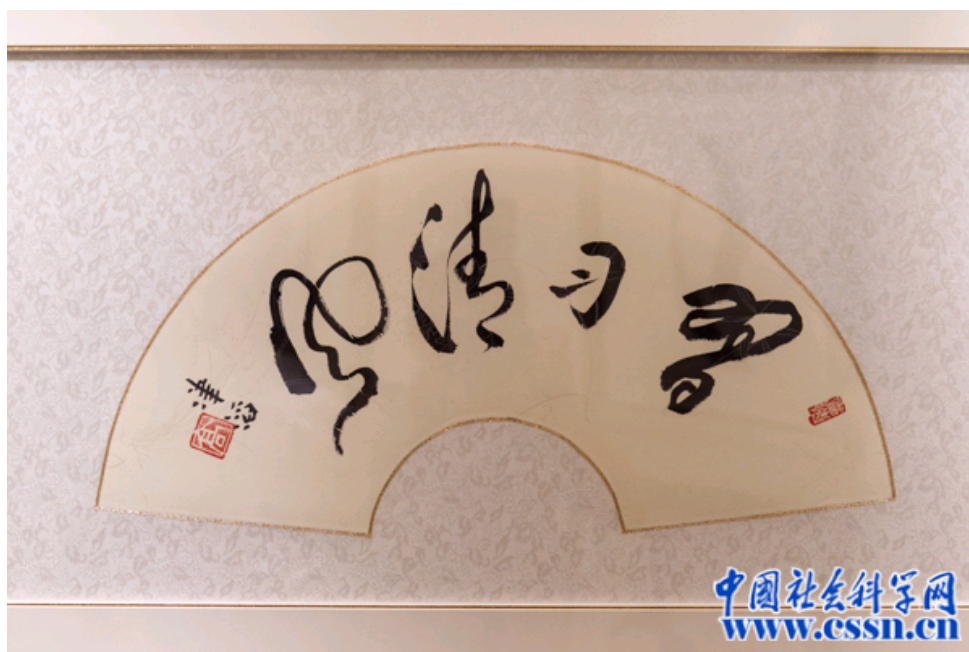 習习清风
中國社会科学网
www.cssn.cn